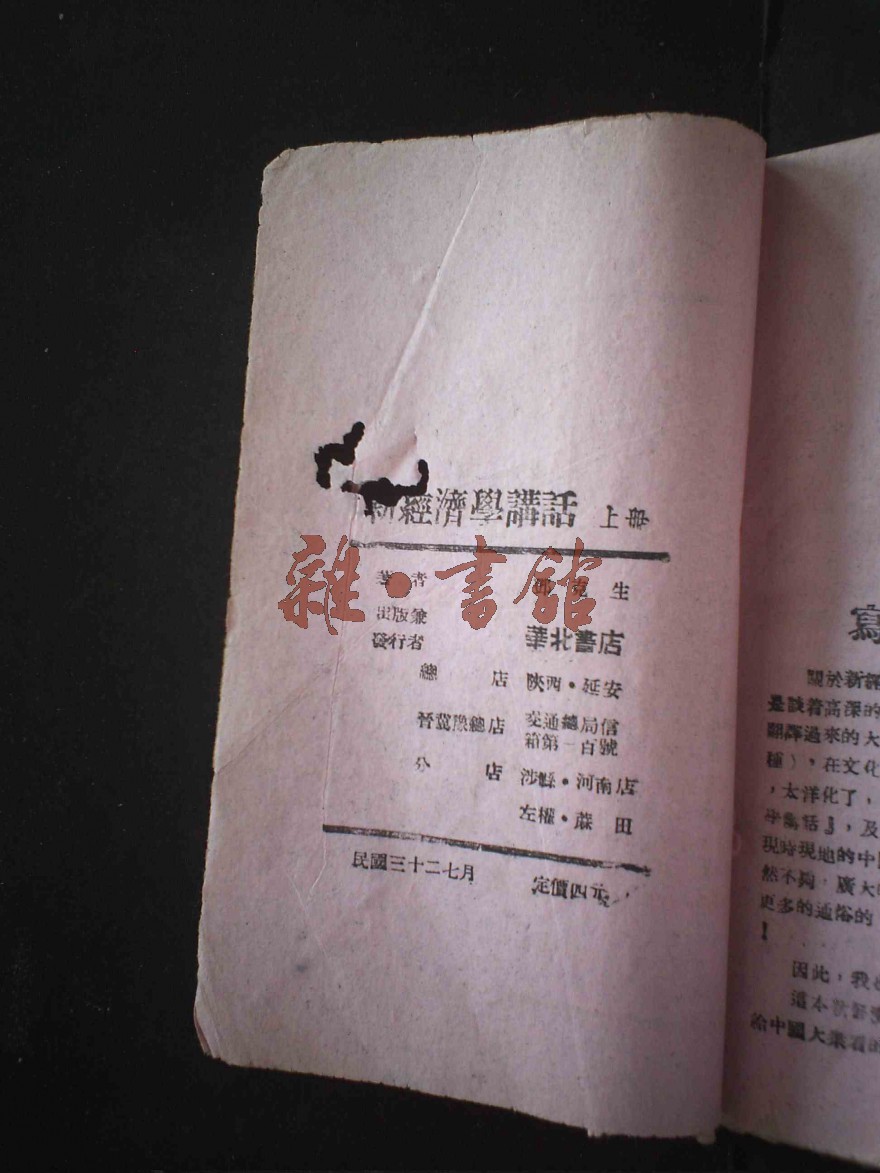 新經濟學講話 上册
著者 克生
出版兼
發行者 華北書店
總店 陝西·延安
晉冀豫總店 交通總局信
箱第一百號
分店 涉縣·河南店
左權·蔴田
民國三十二七月 定價四元
雜·書館
寫
關於新
是談着高深的
翻譯過來的大
種），在文化
，太洋化了，
學講話』，及
現時現地的中
然不夠，廣大
更多的通俗的
！
因此，我
這本
給中國大衆看的